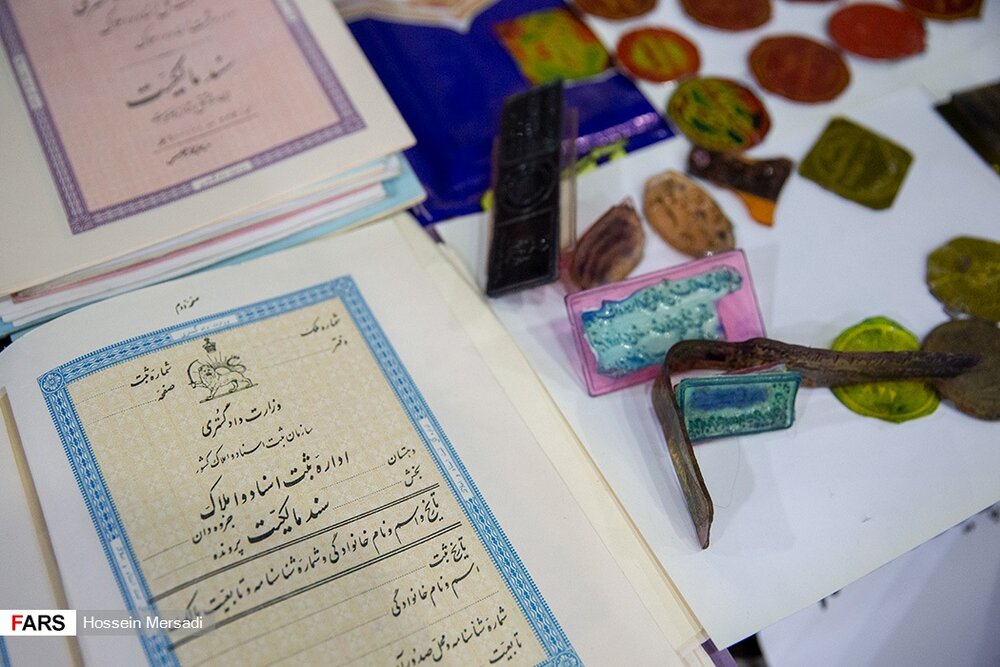 سند مالکیت
صفحه دوم
شماره ثبت
شماره ملک
صفحه
دفتر
وزارت دادگستری
سازمان ثبت اسناد و املاک کشور
اداره ثبت اسناد و املاک
دهستان
بخش
جزوه دان
سند مالکیت
پرونده
تاریخ و اسم و نام خانوادگی و شماره شناسنامه و تابعیت مالک
تاریخ ثبت
اسم و نام خانوادگی
شماره شناسنامه و محل صدور آن
تابعیت
FARS Hossein Mersadi